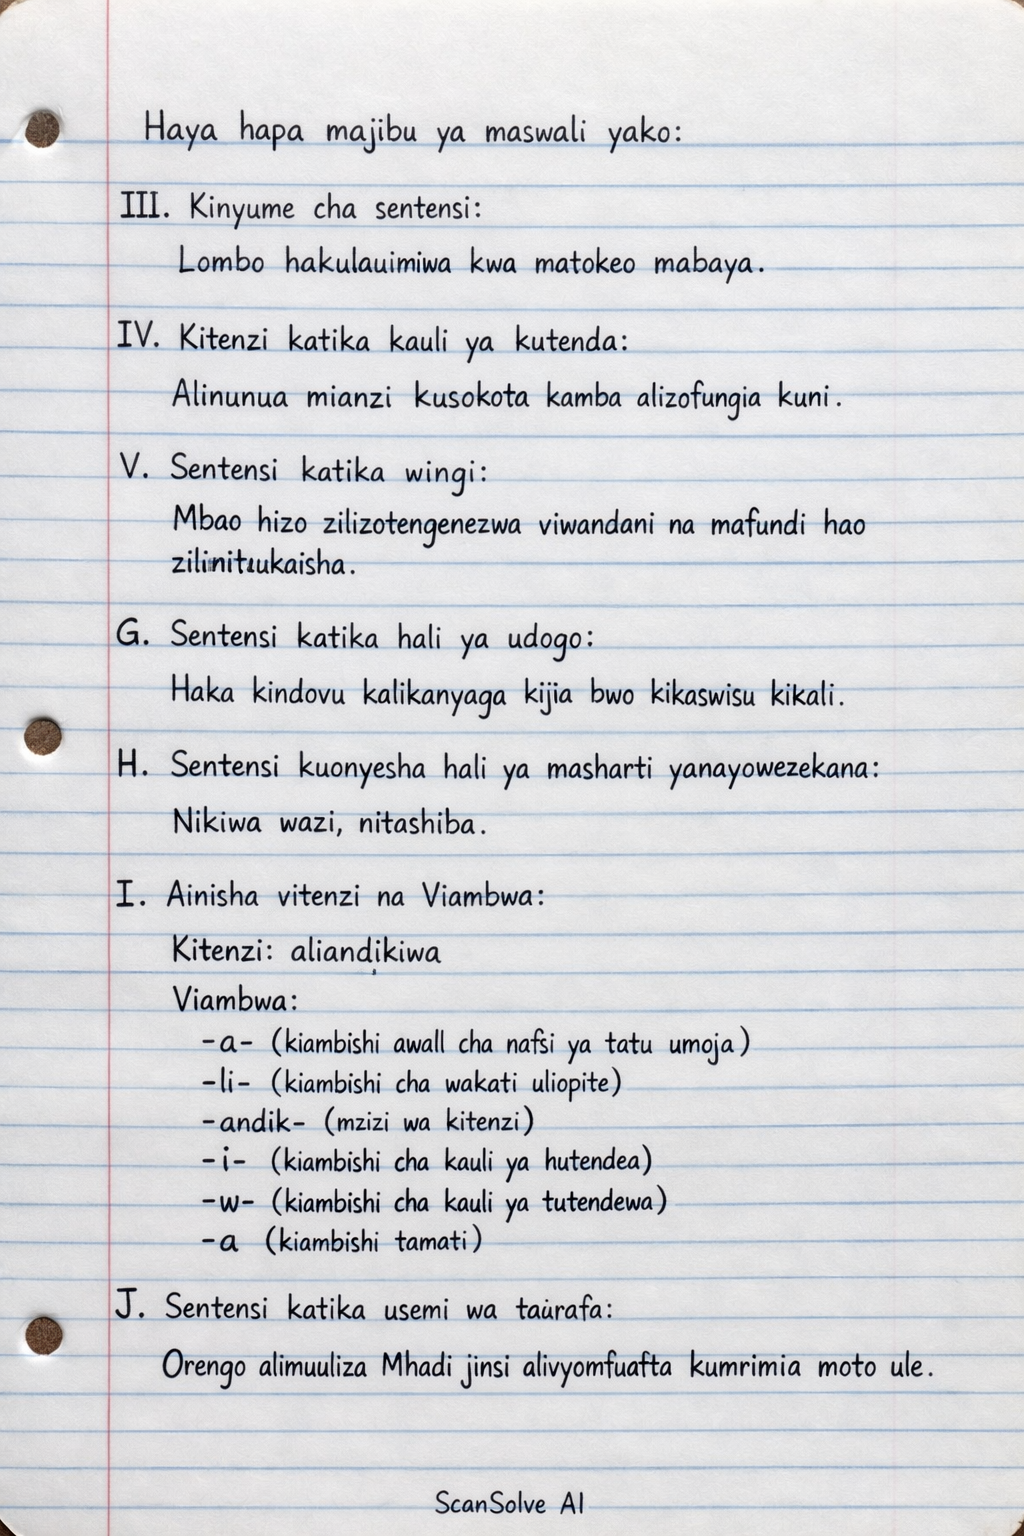 Haya hapa majibu ya maswali yako:
III. Kinyume cha sentensi:
Lombo hakulauimiwa kwa matokeo mabaya.
IV. Kitenzi katika kauli ya kutenda:
Alinunua mianzi kusokota kamba alizofungia kuni.
V. Sentensi katika wingi:
Mbao hizo zilizotengenezwa viwandani na mafundi hao
G. Sentensi katika hali ya udogo:
Haka kindovu kalikanyaga kijia bwo kikaswisu kikali.
H. Sentensi kuonyesha hali ya masharti yanayowezekana:
Nikiwa wazi, nitashiba.
I. Ainisha vitenzi na Viambwa:
Kitenzi: aliandikiwa
Viambwa:
-a- (kiambishi awall cha nafsi ya tatu umoja)
-li- (kiambishi cha wakati uliopite)
-andik- (mzizi wa kitenzi)
-i- (kiambishi cha kauli ya hutendea)
-w- (kiambishi cha kauli ya tutendewa)
-a (kiambishi tamati)
J. Sentensi katika usemi wa taürafa:
Orengo alimuuliza Mhadi jinsi alivyomfuafta kumrimia moto ule.
ScanSolve AI